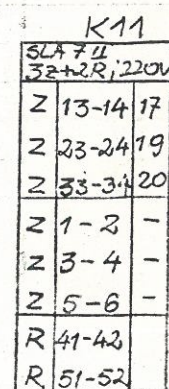 K11
SLA 7 II
3Z+2R; 220V
Z 13-14 17
Z 23-24 19
Z 33-34 20
Z 1-2 -
Z 3-4 -
Z 5-6 -
R 41-42
R 51-52